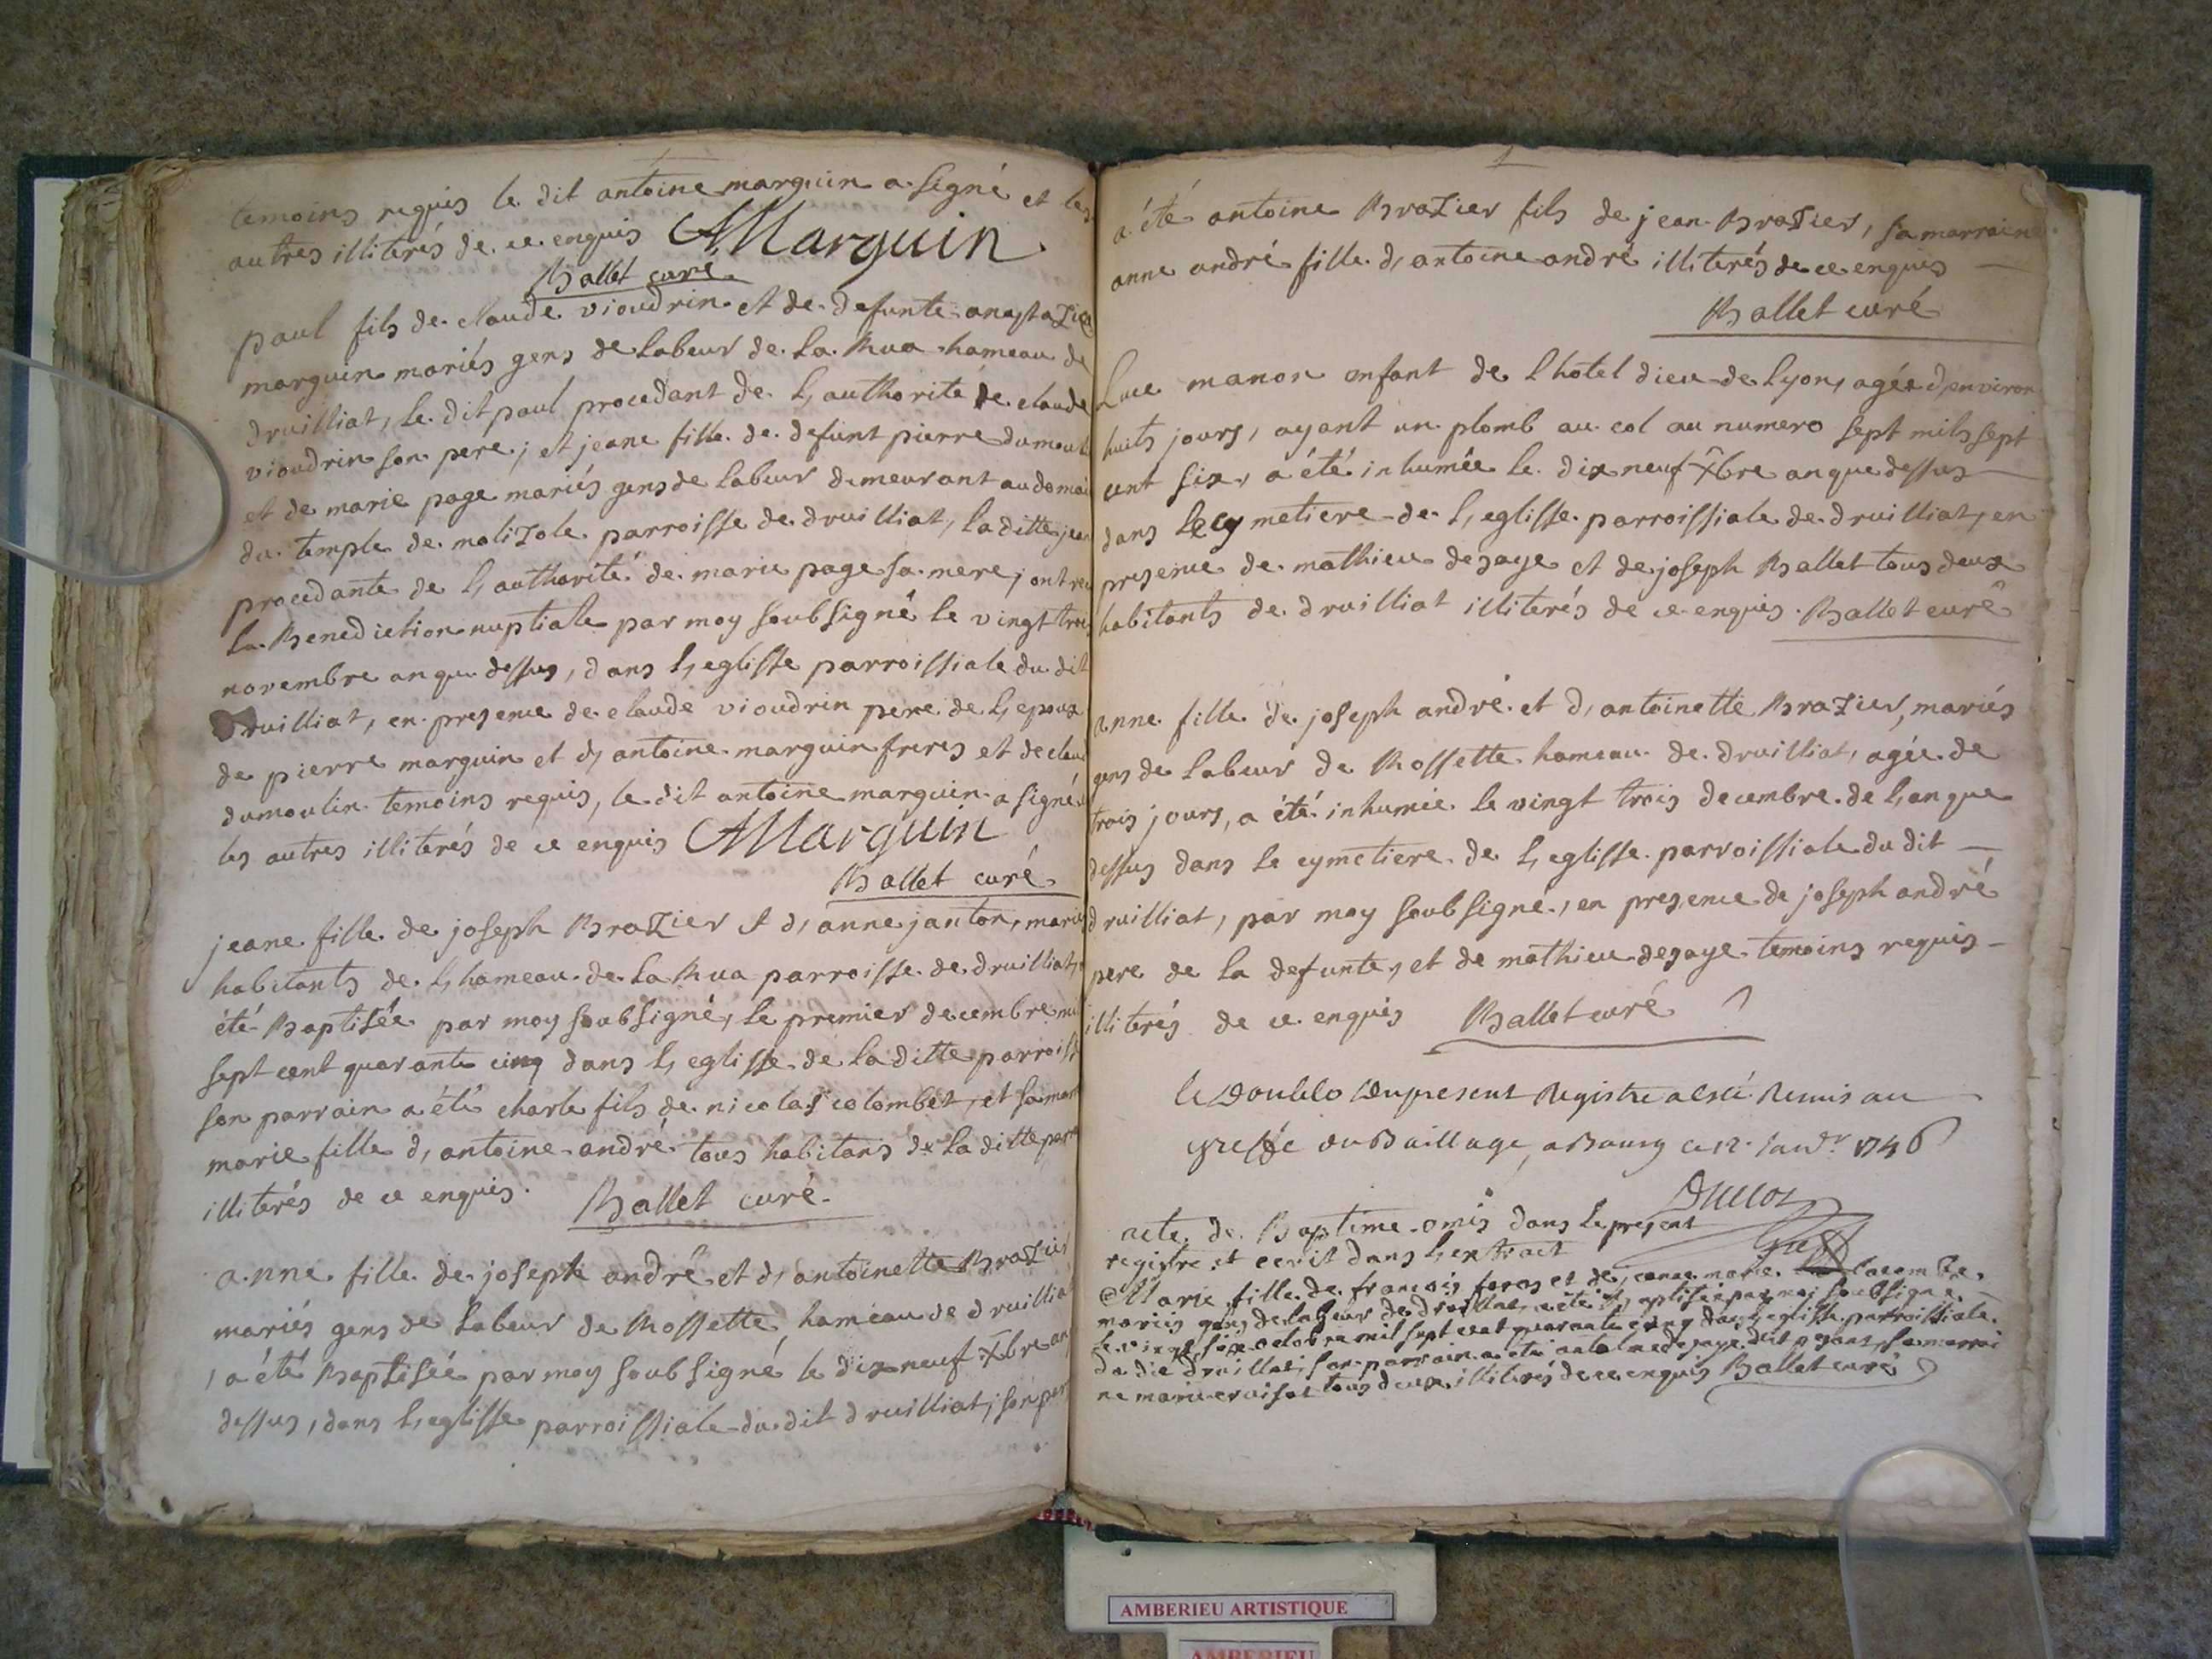 temoins requis le dit antoine marguin a signé et les
autres illiterés de ce enquis AMarguin
Ballet curé
paul fils de claude vioudrin et de defunte anastazie
marguin mariés gens de labeur de la Rua hameau de
druilliat, le dit paul procedant de l, authorité de claude
vioudrin son pere, et jeane fille de defunt pierre dumoul
et de marie page mariés gens de labeur demeurant au domai
du temple de molizole parroisse de druilliat, la ditte jean
procedante de l, authorité de marie page sa mere, ont reu
la Benediction nuptiale par moy soubsigné le vingt troi
novembre an que dessus, dans l, eglisse parroissiale du dit
druilliat, en presence de claude vioudrin pere de l, epoux
de pierre marguin et d, antoine marguin freres et de clau
dumoulin temoins requis, le dit antoine marguin a signé
les autres illiterés de ce enquis AMarguin
Ballet curé
jeane fille de joseph Brazier et d, anne janton, mariés
habitants de l, hameau de la Rua parroisse de druilliat, a
été Baptisée par moy soubsigné, le premier decembre mil
sept cent quarante cinq dans l, eglisse de la ditte parroisse
son parrain a été charle fils de nicolas colombet, et sa marr
marie fille d, antoine andré tous habitans de la ditte parr
illiterés de ce enquis. Ballet curé
anne fille de joseph andré et d, antoinette Brazier
mariés gens de labeur de Rossette hameau de druillia
, a été Baptisée par moy soubsigné le dix neuf Xbre an
dessus, dans l, eglisse parroissiale du dit druilliat, son par
a été antoine Brazier fils de jean Brazier, sa marraine
anne andré fille d, antoine andré illiterés de ce enquis
Ballet curé
Luce manon enfant de l hotel dieu de lyon, agée d, environ
huits jours, ayant un plomb au col au numero sept mils sept
cent six, a été inhumée le dix neuf Xbre an que dessus
dans le cymetiere de l, eglisse parroissiale de druilliat, en
presence de mathieu desaye et de joseph Ballet tous deux
habitants de druilliat illiterés de ce enquis. Ballet curé
anne fille de joseph andré et d, antoinette Brazier, mariés
gens de labeur de Rossette hameau de druilliat, agée de
trois jours, a été inhumée le vingt trois decembre de l, an que
dessus dans le cymetiere de l, eglisse parroissiale du dit
druilliat, par moy soubsigné, en presence de joseph andré
pere de la defunte, et de mathieu desaye temoins requis
illiterés de ce enquis Ballet curé
le Double du present Registre a esté Remis au
greffe du Baillage, a Bourg ce 12 Janvr 1746
acte de Baptime omis dans le present
registre et ecrit dans l, extrait
Marie fille de francois foras et de marie lacombe
mariés gens de labeur de druillat, a été Baptisée par moi soubsigné
le vingt six octobre mil sept cent quarante cinq dans l, eglisse parroissiale
du dit druillat, son parrain a été antoine desaye dit sa marrai
ne marie tous deux illiterés de ce enquis Ballet curé
AMBERIEU ARTISTIQUE
AMBERIEU